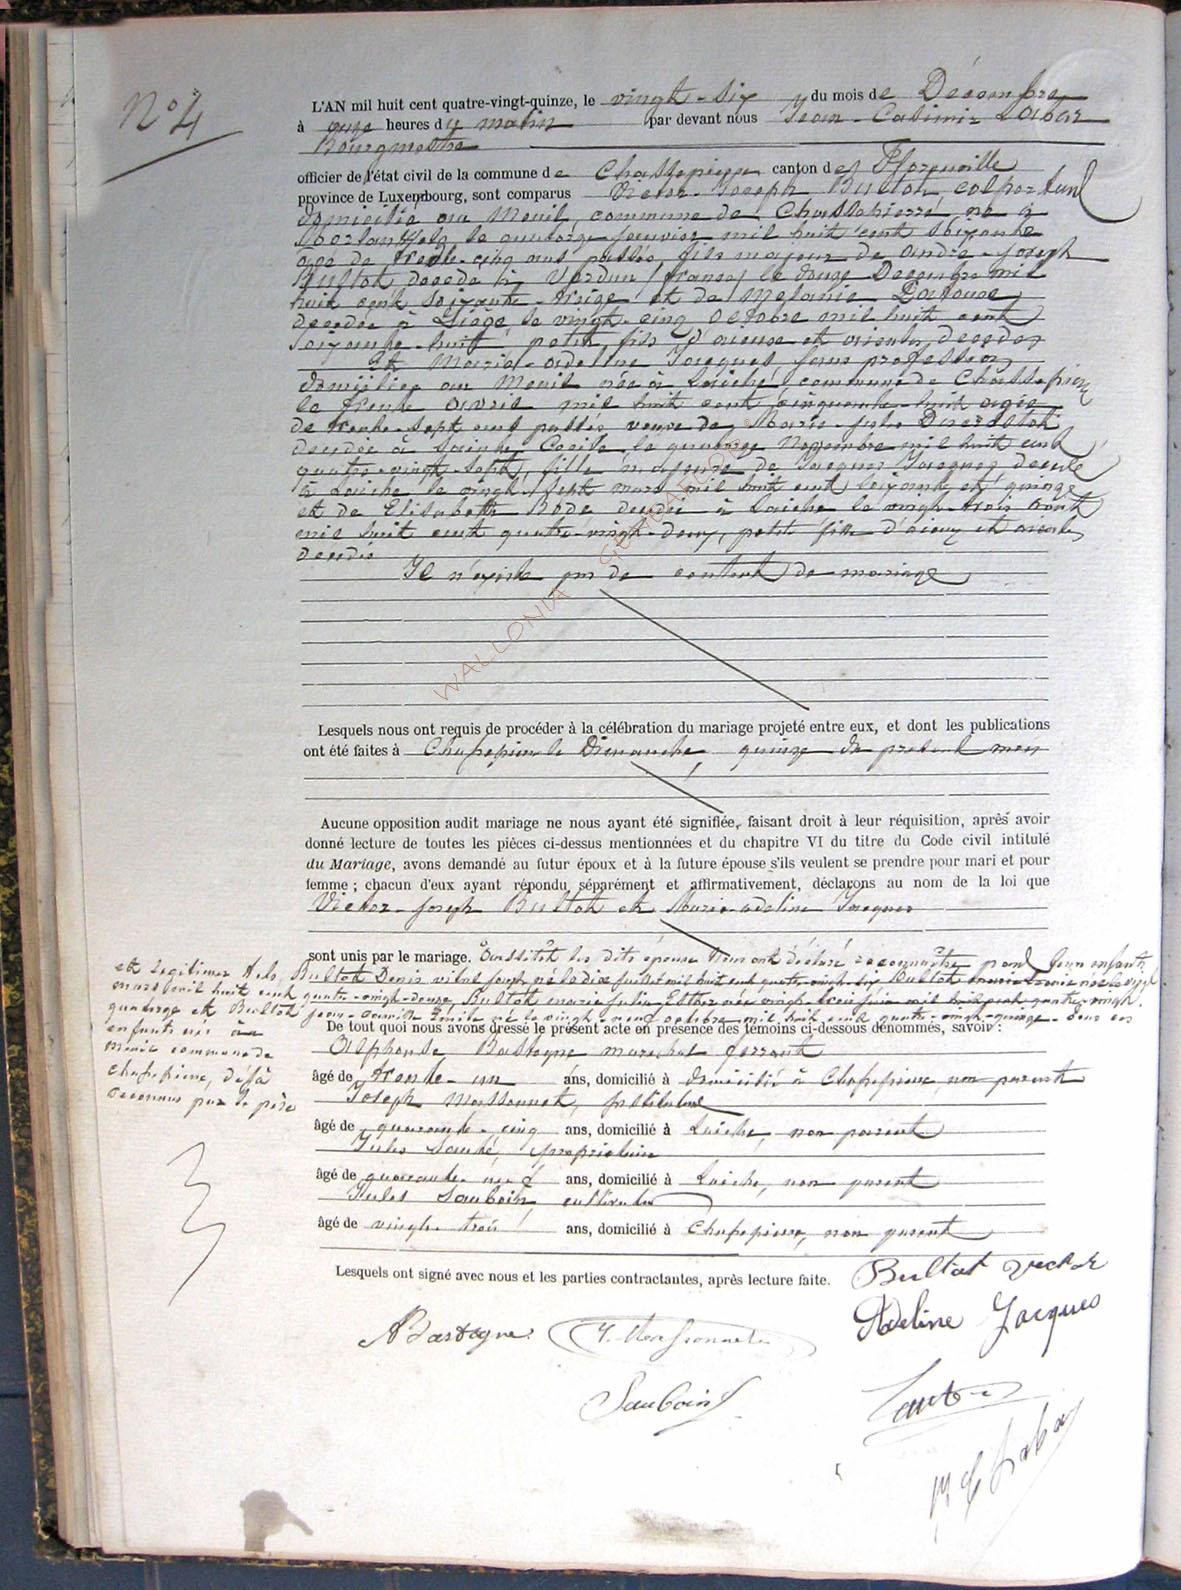 N° 4
L'AN mil huit cent quatre-vingt-quinze, le vingt-six du mois de Décembre
à onze heures du matin par devant nous Jean-Casimir Labar
Bourgmestre
officier de l'état civil de la commune de Chassepierre canton de Florenville
province de Luxembourg, sont comparus Victor-Joseph Bultot, colporteur
domicilié au Menil, commune de Chassepierre, né à
le quatorze janvier mil huit cent soixante
âgé de trente-cinq ans passés, fils majeur de André-Joseph
Bultot décédé à Verdun (France) le douze Décembre mil
huit cent soixante-treize et de Mélanie
décédée à Liège, le vingt-cinq octobre mil huit cent
soixante-huit, petit fils d'aieux et aieules décédés
Et Marie-Adeline Jacques sans profession
domiciliée au Menil née à Laiche, commune de Chassepierre
le trente avril mil huit cent cinquante-huit agée
de trente-sept ans passés veuve de Marie-Jules
décédé à Sainte Cécile le quinze Novembre mil huit cent
quatre-vingt-sept, fille majeure de Jacques Jacques décédé
à Laiche le vingt-sept mars mil huit cent soixante et quinze
et de Elisabeth Bodé décédée à Laiche le vingt-trois août
mil huit cent quatre-vingt-deux, petite fille d'aieux et aieules
décédés
Il n'existe pas de contrat de mariage
WALLONIA
Lesquels nous ont requis de procéder à la célébration du mariage projeté entre eux, et dont les publications
ont été faites à Chassepierre le Dimanche quinze du présent mois
Aucune opposition audit mariage ne nous ayant été signifiée, faisant droit à leur réquisition, après avoir
donné lecture de toutes les pièces ci-dessus mentionnées et du chapitre VI du titre du Code civil intitulé
du Mariage, avons demandé au futur époux et à la future épouse s'ils veulent se prendre pour mari et pour
femme ; chacun d'eux ayant répondu séparément et affirmativement, déclarons au nom de la loi que
Victor-Joseph Bultot et Marie-Adeline Jacques
sont unis par le mariage. Aussitôt les dits époux nous ont déclaré reconnaître pour leurs enfants
et légitimer Bultot Denis né le dix juillet mil huit cent quatre-vingt-six Bultot
mars mil huit cent quatre-vingt-douze, Bultot Marie Julie Esther née vingt-trois juin mil huit cent quatre-vingt
quatorze et Bultot Jean-Camille Emile né le vingt-neuf octobre mil huit cent quatre-vingt-quinze tous ces
enfants nés à la
même commune de
Chassepierre, déjà
reconnus par le père
De tout quoi nous avons dressé le présent acte en présence des témoins ci-dessous dénommés, savoir :
Alphonse Bastogne maréchal ferrant
âgé de trente-un ans, domicilié à domicilié à Chassepierre, non parent
Joseph Massonnet, instituteur
âgé de quarante-cinq ans, domicilié à Laiche, non parent
Jules propriétaire
âgé de quarante-neuf ans, domicilié à Laiche, non parent
Jules Sauboin, cultivateur
âgé de vingt-trois ans, domicilié à Chassepierre, non parent
Lesquels ont signé avec nous et les parties contractantes, après lecture faite.
Bultot Victor
Adeline Jacques
A Bastogne
J. Massonnet
Sauboin J